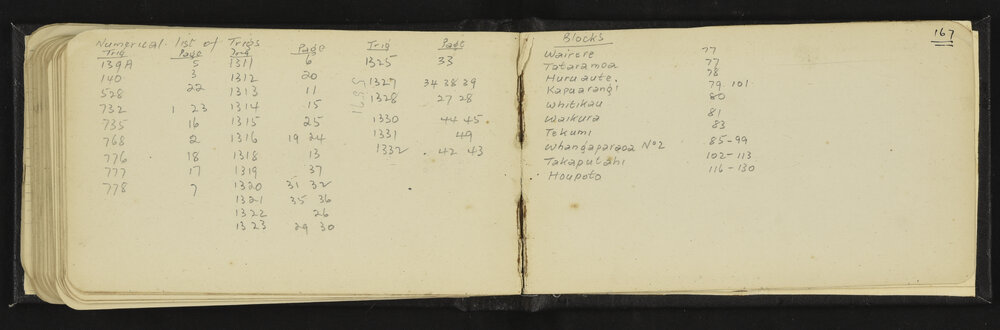 Numerical list of Trigs
Trig Page Trig Page Trig Page
139A 5 1311 6 1325 33
140 3 1312 20 1327 34 38 39
528 22 1313 11 1328 27 28
732 1 23 1314 15 1330 44 45
735 16 1315 25 1331 49
768 2 1316 19 24 1332 42 43
776 18 1318 13
777 17 1319 37
778 7 1320 31 32
1321 35 36
1322 26
1323 29 30
167
Blocks
Wairere 77
Tataramoa 77
Huruaute. 78
Kapuarangi 79 101
Whitikau 80
Waikura 81
Tekumi 83
Whangaparaoa No2 85-99
Takaputahi 102-113
Houpoto 116-130